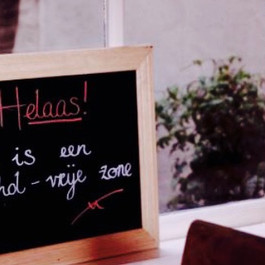 Helaas!
is een
hol-vrije zone